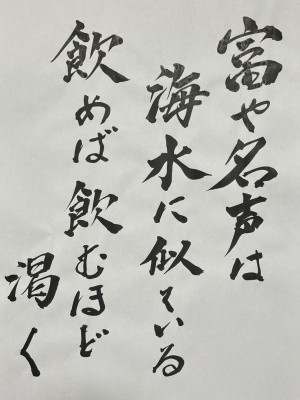 富や名声は
海水に似ている
飲めば飲むほど
渇く